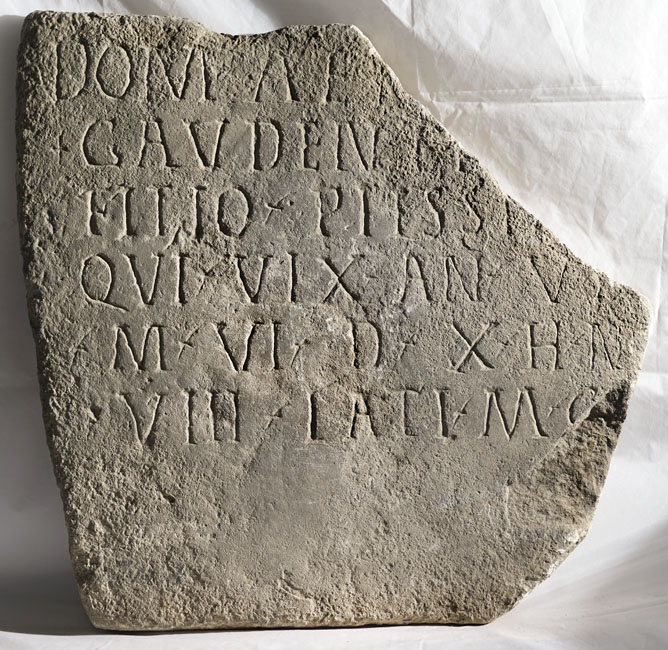 DOM
GAVDEN
FILIO PIISSI
QVI VIX AN V
M VI D X H N
VIII LATI M C